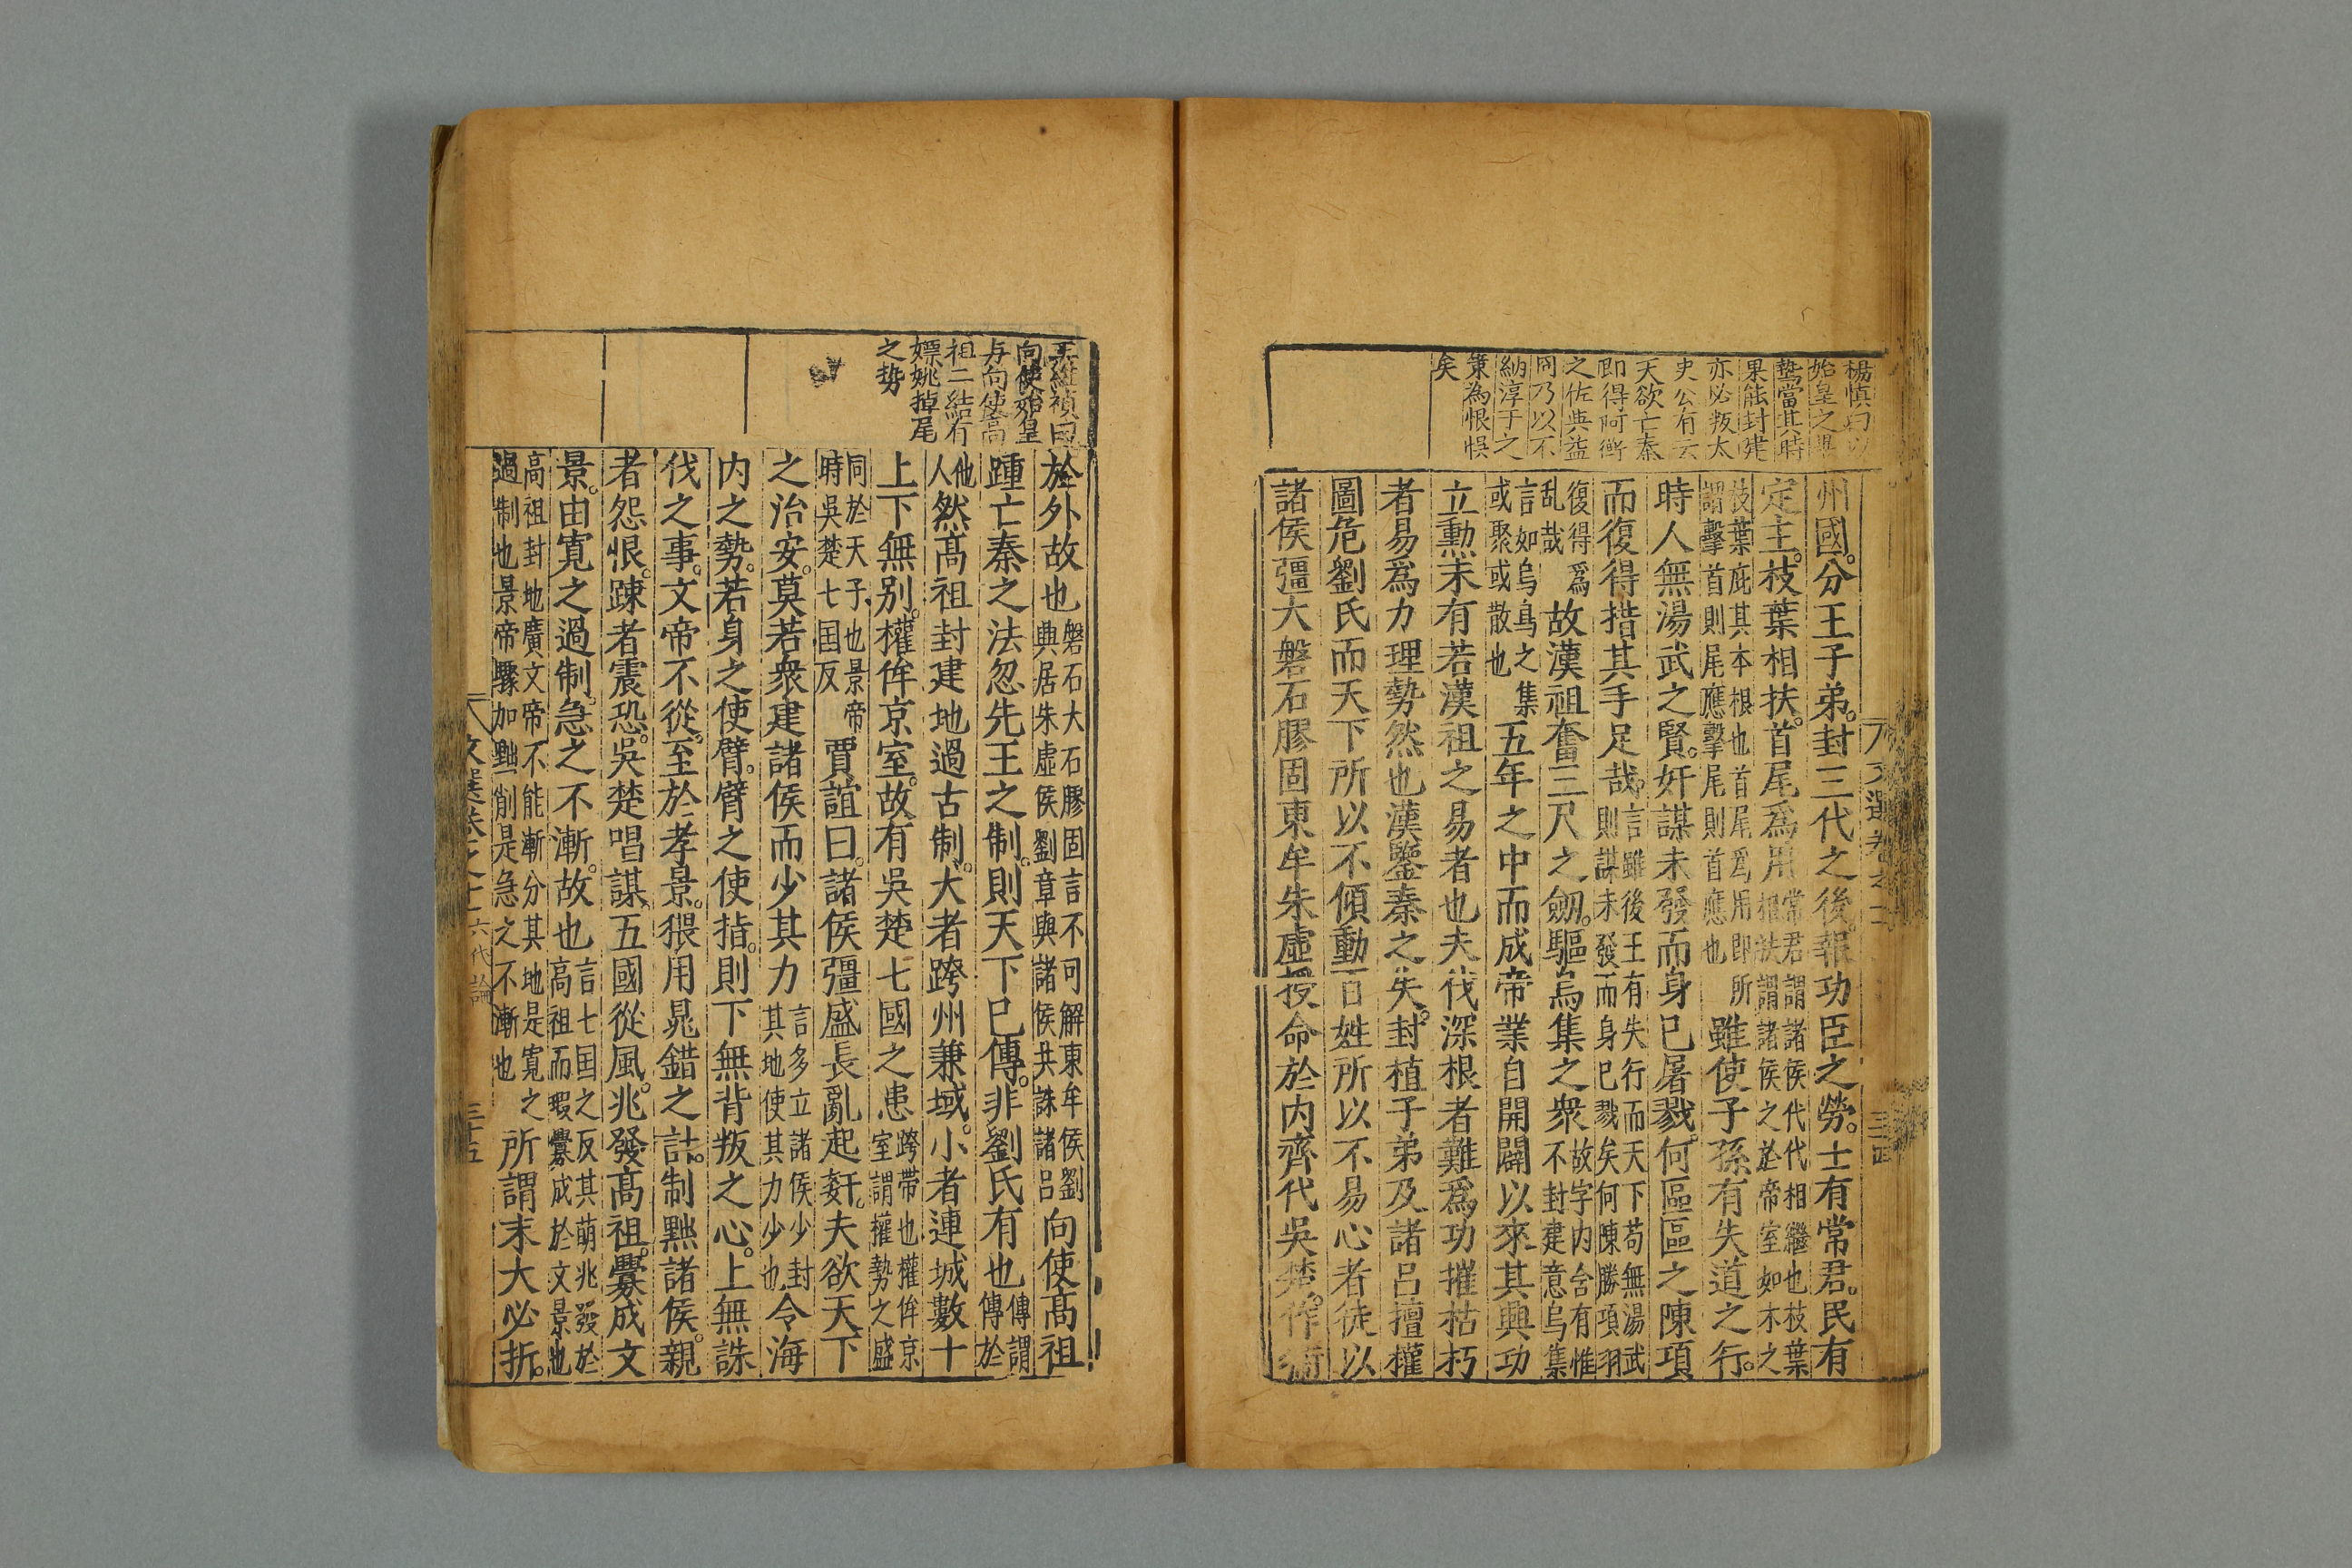 楊慎曰以
始皇之暴
鷙當其時
果能封建
亦必叛太
史公有云
天欲亡秦
即得阿衡
之佐典益
罔乃以不
納淳于之
策為恨悞
矣
州國分王子弟封三代之後報功臣之勞士有常君民有
定主枝葉相扶首尾爲用常君謂諸侯代代相繼也枝葉相扶謂諸侯之於帝室如木之
枝葉庇其本根也首尾爲用即所謂擊首則尾應擊尾則首應也雖使子孫有失道之行
時人無湯武之賢奸謀未發而身已屠戮何區區之陳項
而復得措其手足哉言雖後王有失行而天下苟無湯武則謀未發而身已戮矣何陳勝項羽
復得爲乱哉故漢祖奮三尺之劒驅烏集之衆故字内舍有惟不封建意烏集
言如烏鳥之集或聚或散也五年之中而成帝業自開闢以來其興功
立勳未有若漢祖之易者也夫伐深根者難爲功摧枯朽
者易爲力理勢然也漢鑒秦之失封植子弟及諸呂擅權
圖危劉氏而天下所以不傾動百姓所以不易心者徒以
諸侯彊大磐石膠固東牟朱虛授命於内齊代吳楚作衛
王維禎曰
向使始皇
与向使高
祖二結有
嫖姚掉尾
之势
於外故也磐石大石膠固言不可解東牟侯劉興居朱虛侯劉章與諸侯共誅諸呂向使髙祖
踵亡秦之法忽先王之制則天下已傳非劉氏有也傳謂傳於
他人然髙祖封建地過古制大者跨州兼域小者連城數十
上下無別權侔京室故有吳楚七國之患跨帶也權侔京室謂權勢之盛
同於天子也景帝時吳楚七囯反賈誼曰諸侯彊盛長亂起姧夫欲天下
之治安莫若衆建諸侯而少其力言多立諸侯少封其地使其力少也令海
内之勢若身之使臂臂之使指則下無背叛之心上無誅
伐之事文帝不從至於孝景猥用晁錯之計制黜諸侯親
者怨恨踈者震恐吳楚唱謀五國從風兆發髙祖釁成文
景由寛之過制急之不漸故也言七囯之反其萌兆發於高祖而瑕釁成於文景也
高祖封地廣文帝不能漸分其地是寛之過制也景帝驟加黜削是急之不漸也所謂末大必折
六代論
三十五